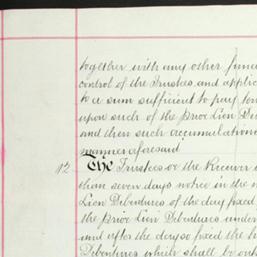 together with any other fund
control of the Trustees and applic
to a sum sufficient to pay for
upon such of the prior Lien De
and then such accumulation
manner aforesaid
12 The Trustees or the Receiver
than seven days notice in the n
Lien Debentures of the day fixed
the prior Lien Debentures under
and after the day so fixed the h
Debentures which shall be out